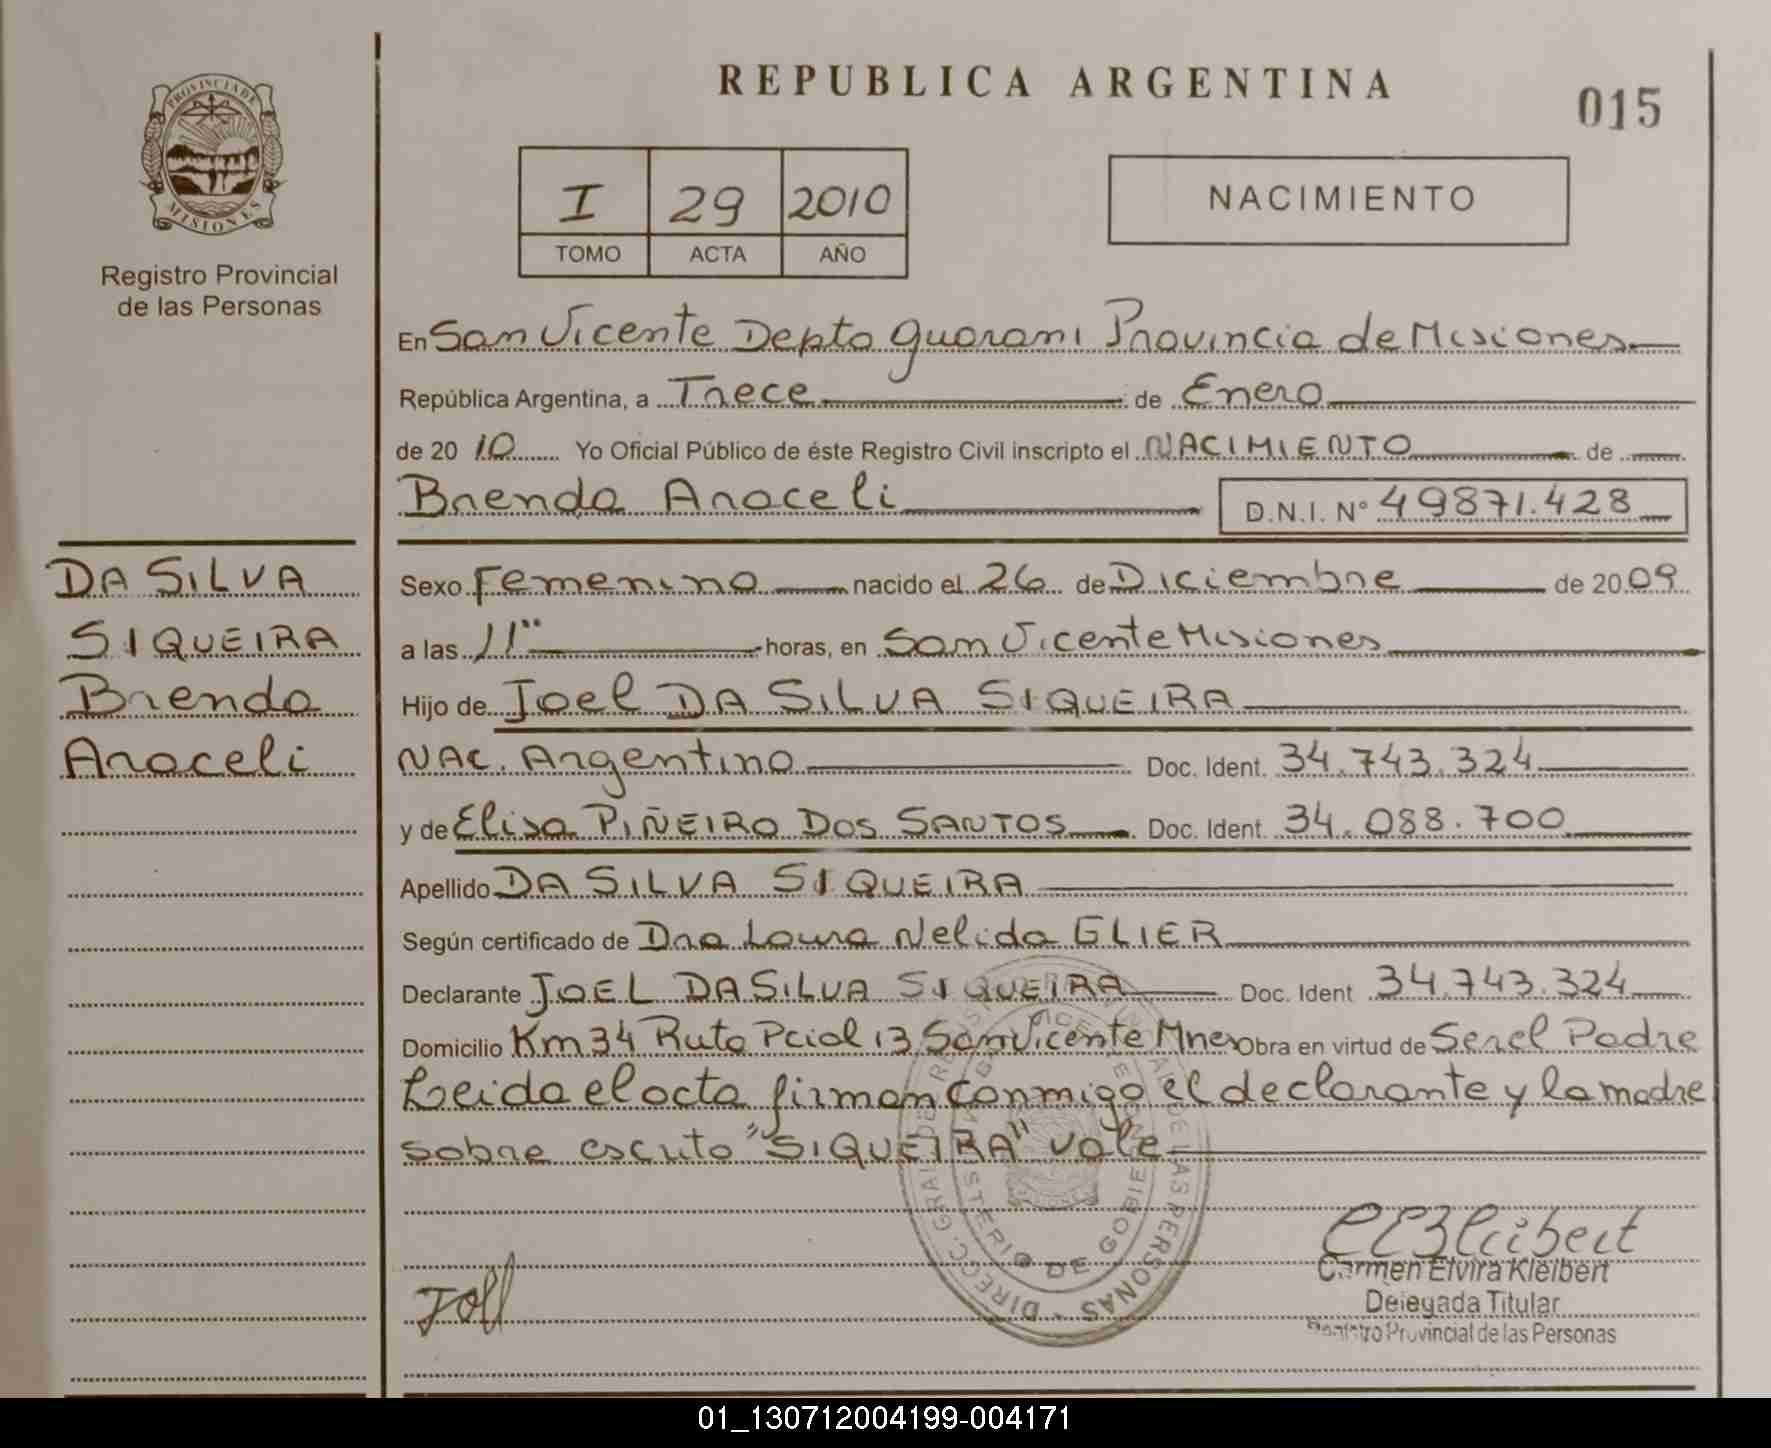 PROVINCIA DE
MISIONES
Registro Provincial
de las Personas
REPUBLICA ARGENTINA
015
I 29 2010
TOMO ACTA AÑO
NACIMIENTO
En San Vicente Depto Guarani Provincia de Misiones
República Argentina, a Trece de Enero
de 2010 Yo Oficial Público de éste Registro Civil inscripto el NACIMIENTO de
Brenda Araceli D.N.I. N° 49871.428
DA SILVA
SIQUEIRA
Brenda
Araceli
Sexo Femenino nacido el 26 de Diciembre de 2009
a las 11" horas, en San Vicente Misiones
Hijo de Joel DA SILVA SIQUEIRA
NAC. Argentino Doc. Ident. 34.743.324
y de Elisa PIÑEIRO DOS SANTOS Doc. Ident. 34.088.700
Apellido DA SILVA SIQUEIRA
Según certificado de Dra Laura Nelida GLIER
Declarante JOEL DA SILVA SIQUEIRA Doc. Ident 34.743.324
Domicilio Km 34 Ruta Pcial 13 San Vicente Mnes Obra en virtud de Ser el Padre
Leida el acta firman conmigo el declarante y la madre
sobre escrito "SIQUEIRA" vale
MINISTERIO DE GOBIE
DIRECC. GRAL DE LAS PERSONAS
Joel
Carmen Elvira Kleibert
Delegada Titular
Registro Provincial de las Personas
01_130712004199-004171